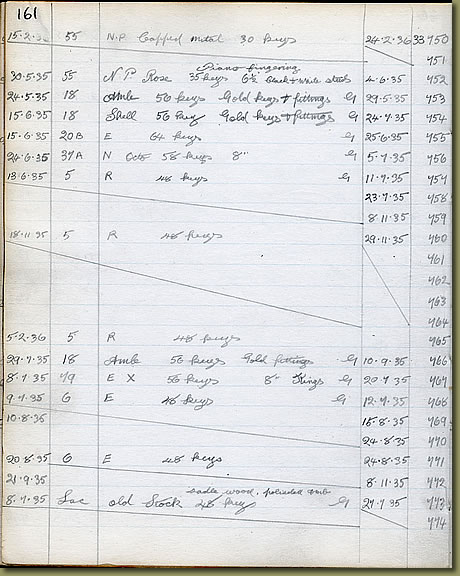 161
15.2.36 55 N.P. Capped metal 30 keys 24.2.36 33450
451
Piano fingering
30.5.35 55 N P Rose 35 keys 6½ black & white studs 4.6.35 452
24.5.35 18 Amb 56 keys Gold keys & fittings G 29.5.35 453
15.6.35 18 Shell 56 key Gold keys & fittings G 24.7.35 454
15.6.35 20B E 64 keys 25.6.35 455
24.6.35 37A N Octo 58 keys 8" G 5.7.35 456
18.6.35 5 R 48 keys G 11.7.35 457
23.7.35 458
8.11.35 459
18.11.35 5 R 48 keys 29.11.35 460
461
462
463
464
5.2.36 5 R 48 keys 465
29.7.35 18 Amb 56 keys Gold fittings G 10.9.35 466
8.7.35 49 E X 56 keys 8" Rings G 20.7.35 467
9.7.35 6 E 48 keys G 12.7.35 468
10.8.35 15.8.35 469
24.8.35 470
20.8.35 6 E 48 keys 24.8.35 471
21.9.35 8.11.35 472
wood, polished amb
8.7.35 old Stock 48 keys G 27.7.35 473
474